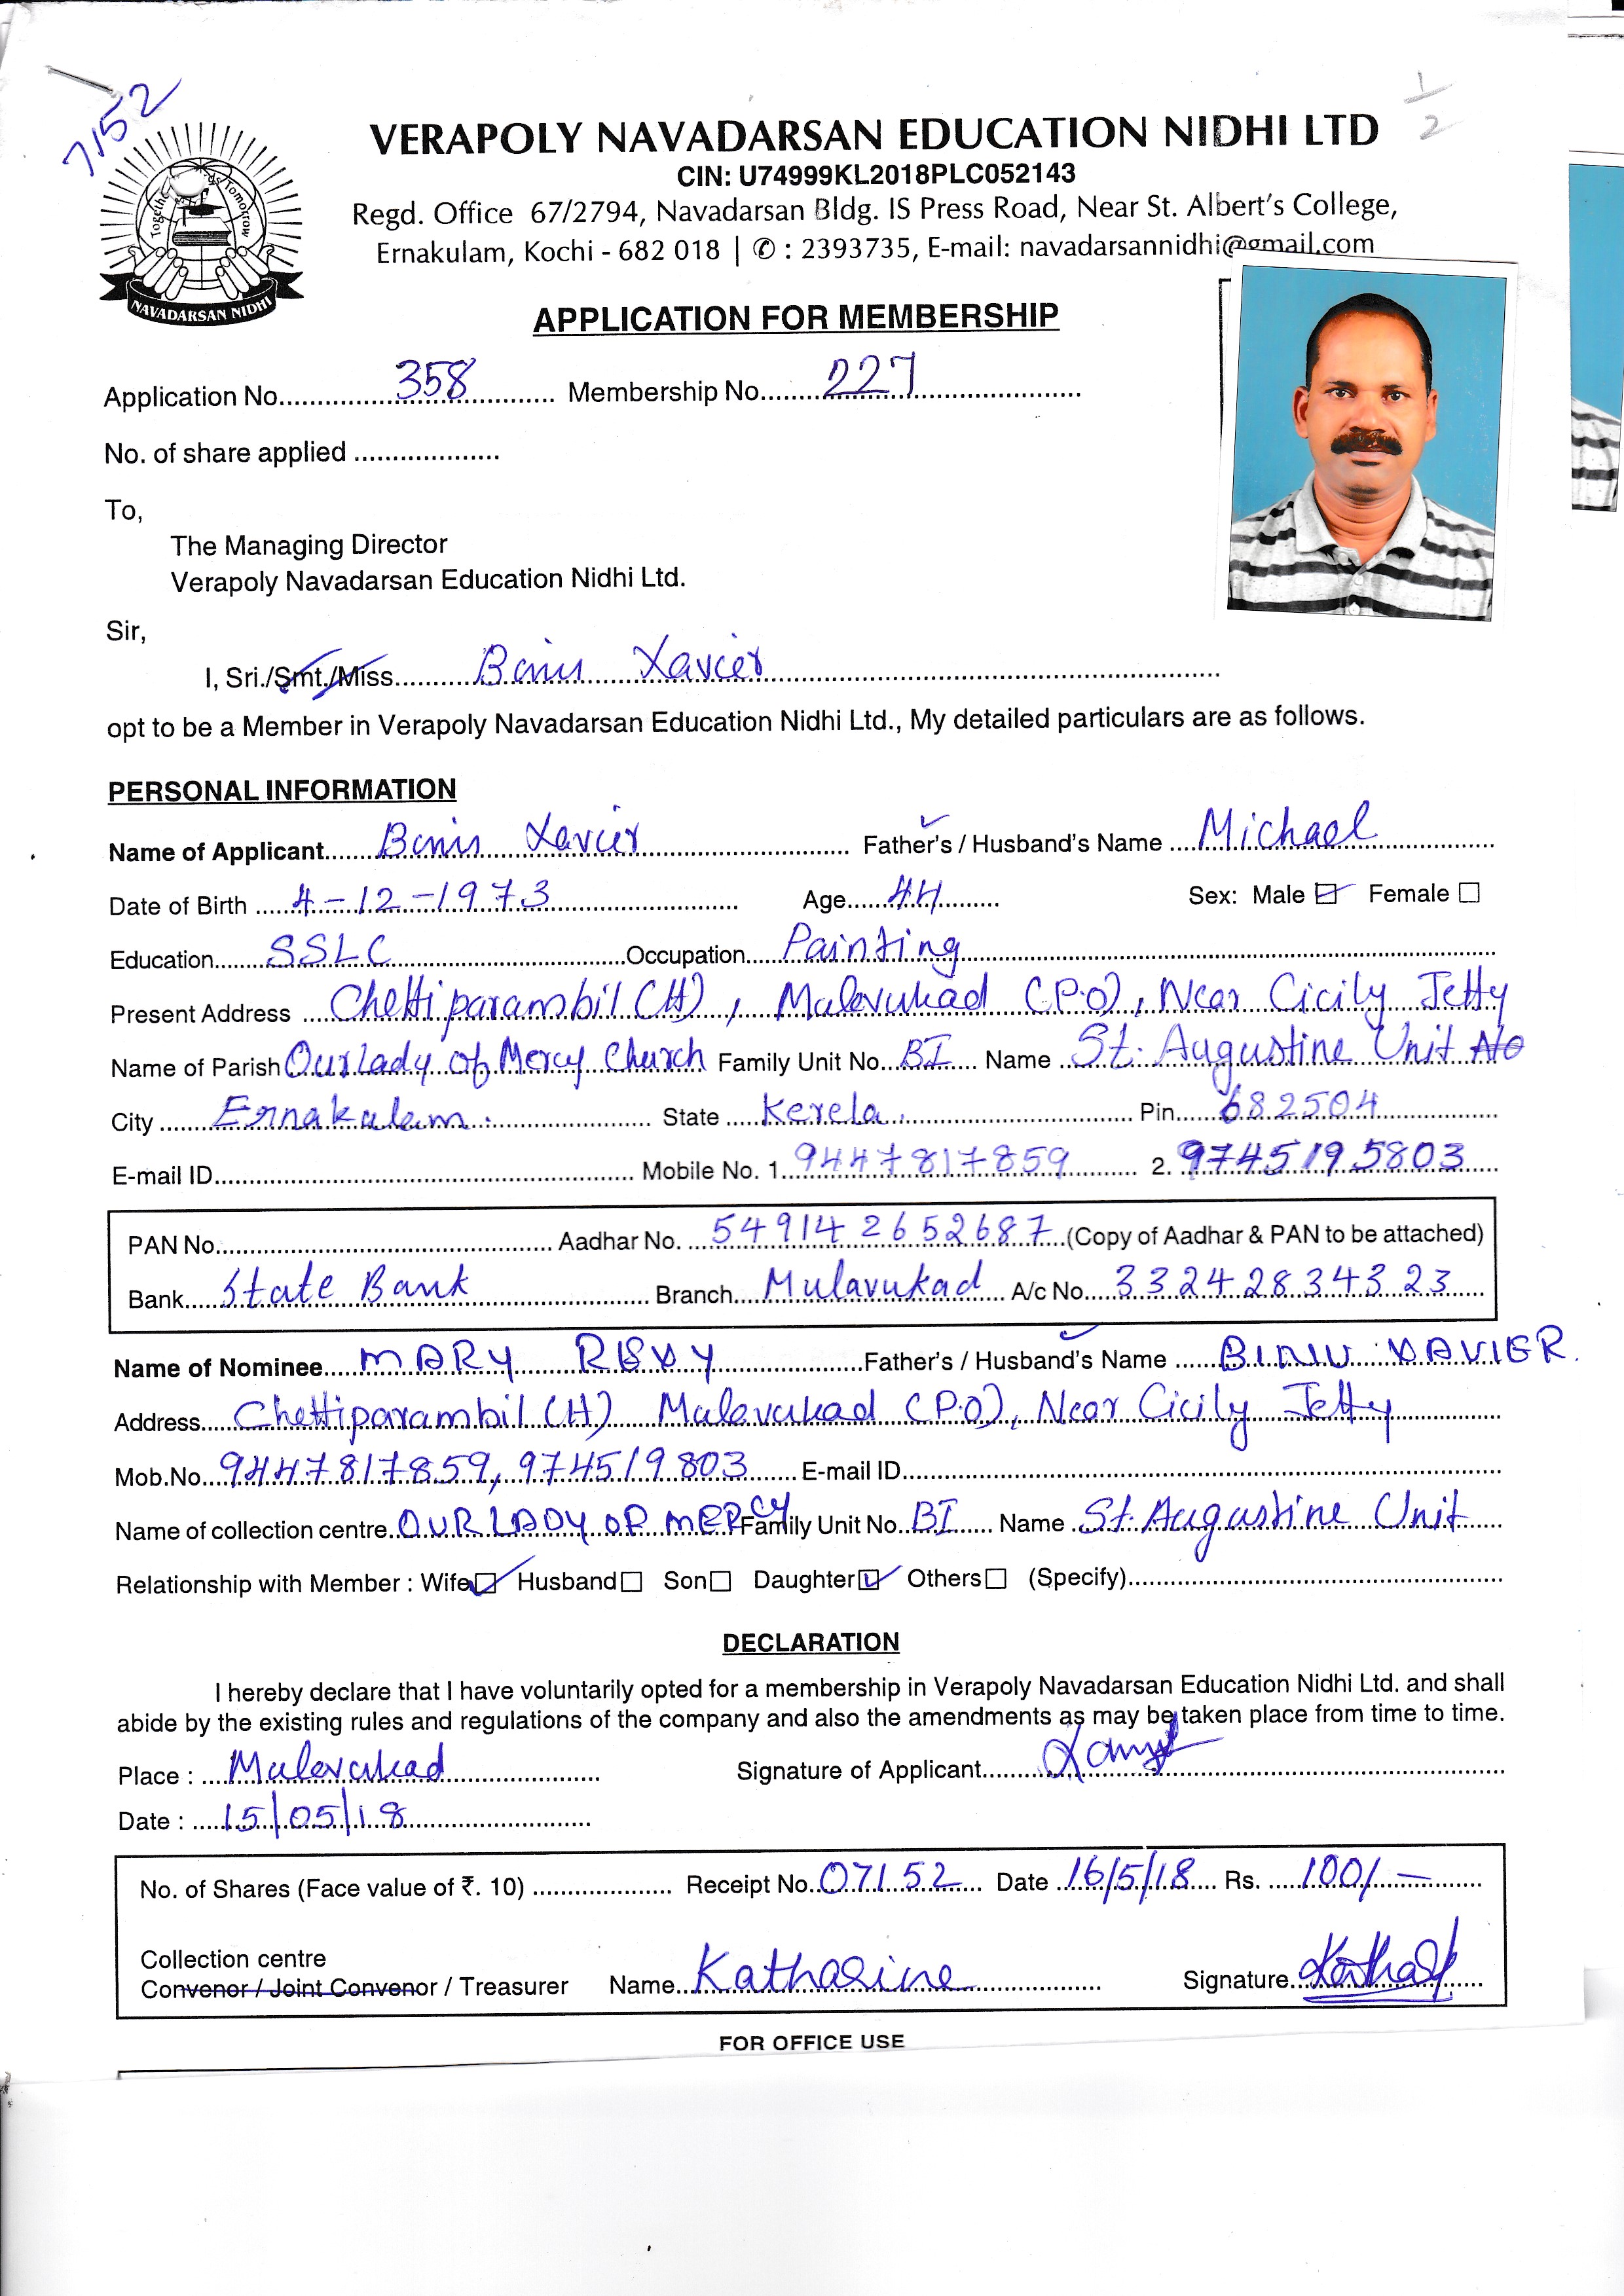 7152
1/2
VERAPOLY NAVADARSAN EDUCATION NIDHI LTD
CIN: U74999KL2018PLC052143
Regd. Office 67/2794, Navadarsan Bldg. IS Press Road, Near St. Albert's College,
Ernakulam, Kochi - 682 018 | ✆ : 2393735, E-mail: navadarsannidhi@gmail.com
Together Tomorrow
NAVADARSAN NIDHI
APPLICATION FOR MEMBERSHIP
Application No. 358 Membership No. 227
No. of share applied
To,
The Managing Director
Verapoly Navadarsan Education Nidhi Ltd.
Sir,
I, Sri./Smt./Miss. Xavier
opt to be a Member in Verapoly Navadarsan Education Nidhi Ltd., My detailed particulars are as follows.
PERSONAL INFORMATION
Name of Applicant Xavier Father's / Husband's Name Michael
Date of Birth 4-12-1973 Age 44 Sex: Male ☑ Female ☐
Education SSLC Occupation Painting
Present Address Chettiparambil (H), Mulavukad (P.O), Near Cicily Jetty
Name of Parish Our Lady of Mercy Church Family Unit No. BI Name St. Augustine Unit
City Ernakulam. State Kerela. Pin 682504
E-mail ID Mobile No. 1. 9447817859 2. 9745195803
PAN No. Aadhar No. 549142652687 (Copy of Aadhar & PAN to be attached)
Bank State Bank Branch Mulavukad A/c No. 33242834323
Name of Nominee MARY Father's / Husband's Name BINU XAVIER.
Address Chettiparambil (H) Mulavukad (P.O), Near Cicily Jetty
Mob.No. 9447817859, 974519803 E-mail ID
Name of collection centre OUR LADY OF MERCY Family Unit No. BI Name St. Augustine Unit
Relationship with Member : Wife ☑ Husband ☐ Son ☐ Daughter ☑ Others ☐ (Specify)
DECLARATION
I hereby declare that I have voluntarily opted for a membership in Verapoly Navadarsan Education Nidhi Ltd. and shall
abide by the existing rules and regulations of the company and also the amendments as may be taken place from time to time.
Place : Mulavukad Signature of Applicant
Date : 15/05/18
No. of Shares (Face value of ₹. 10) Receipt No. 07152 Date 16/5/18 Rs. 100/-
Collection centre
Convenor / Joint Convenor / Treasurer Name Katharine Signature
FOR OFFICE USE